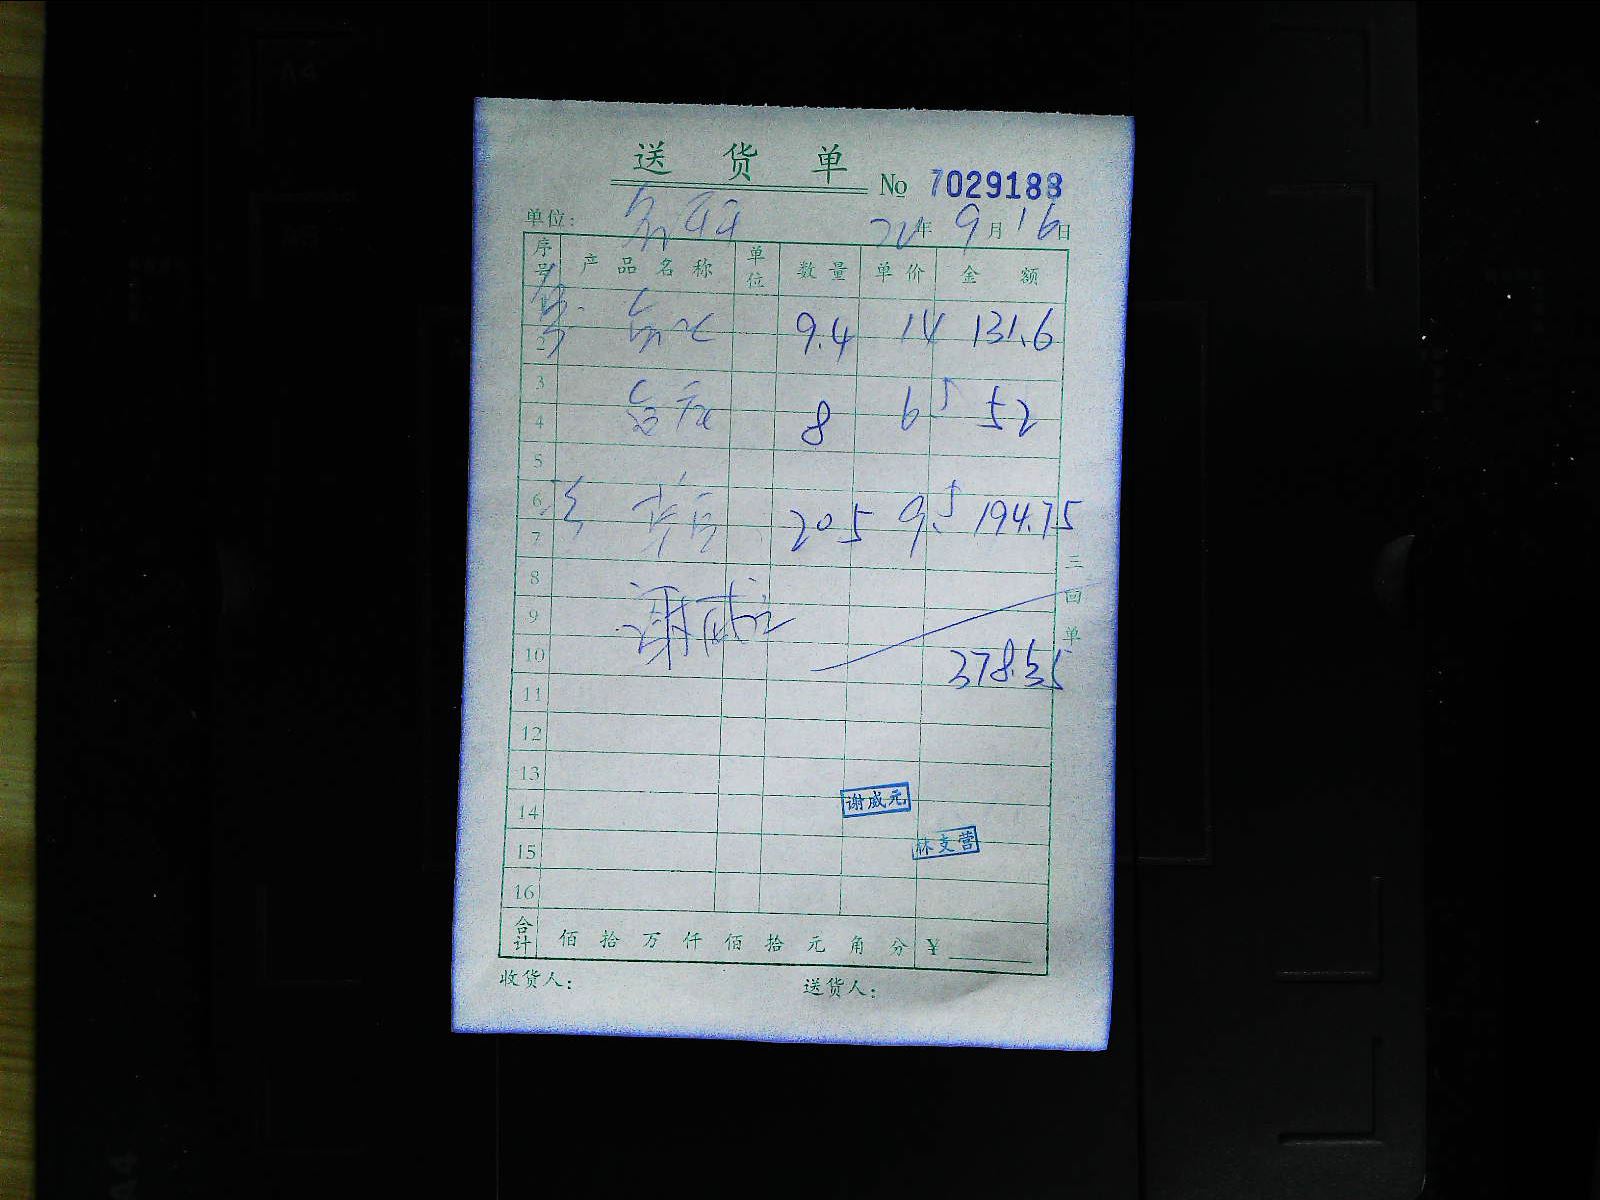 送 货 单
No 7029188
单位: 年 9 月 16 日
序号 产品名称 单位 数量 单价 金额
1
9.4 14 131.6
2
3
8 6.5 52
4
5
6
20.5 9.5 194.75
7
8
谢威元
9
10
378.35
11
12
13
谢威元
14
林支营
15
16
合计 佰 拾 万 仟 佰 拾 元 角 分 ¥
收货人: 送货人:
三回单